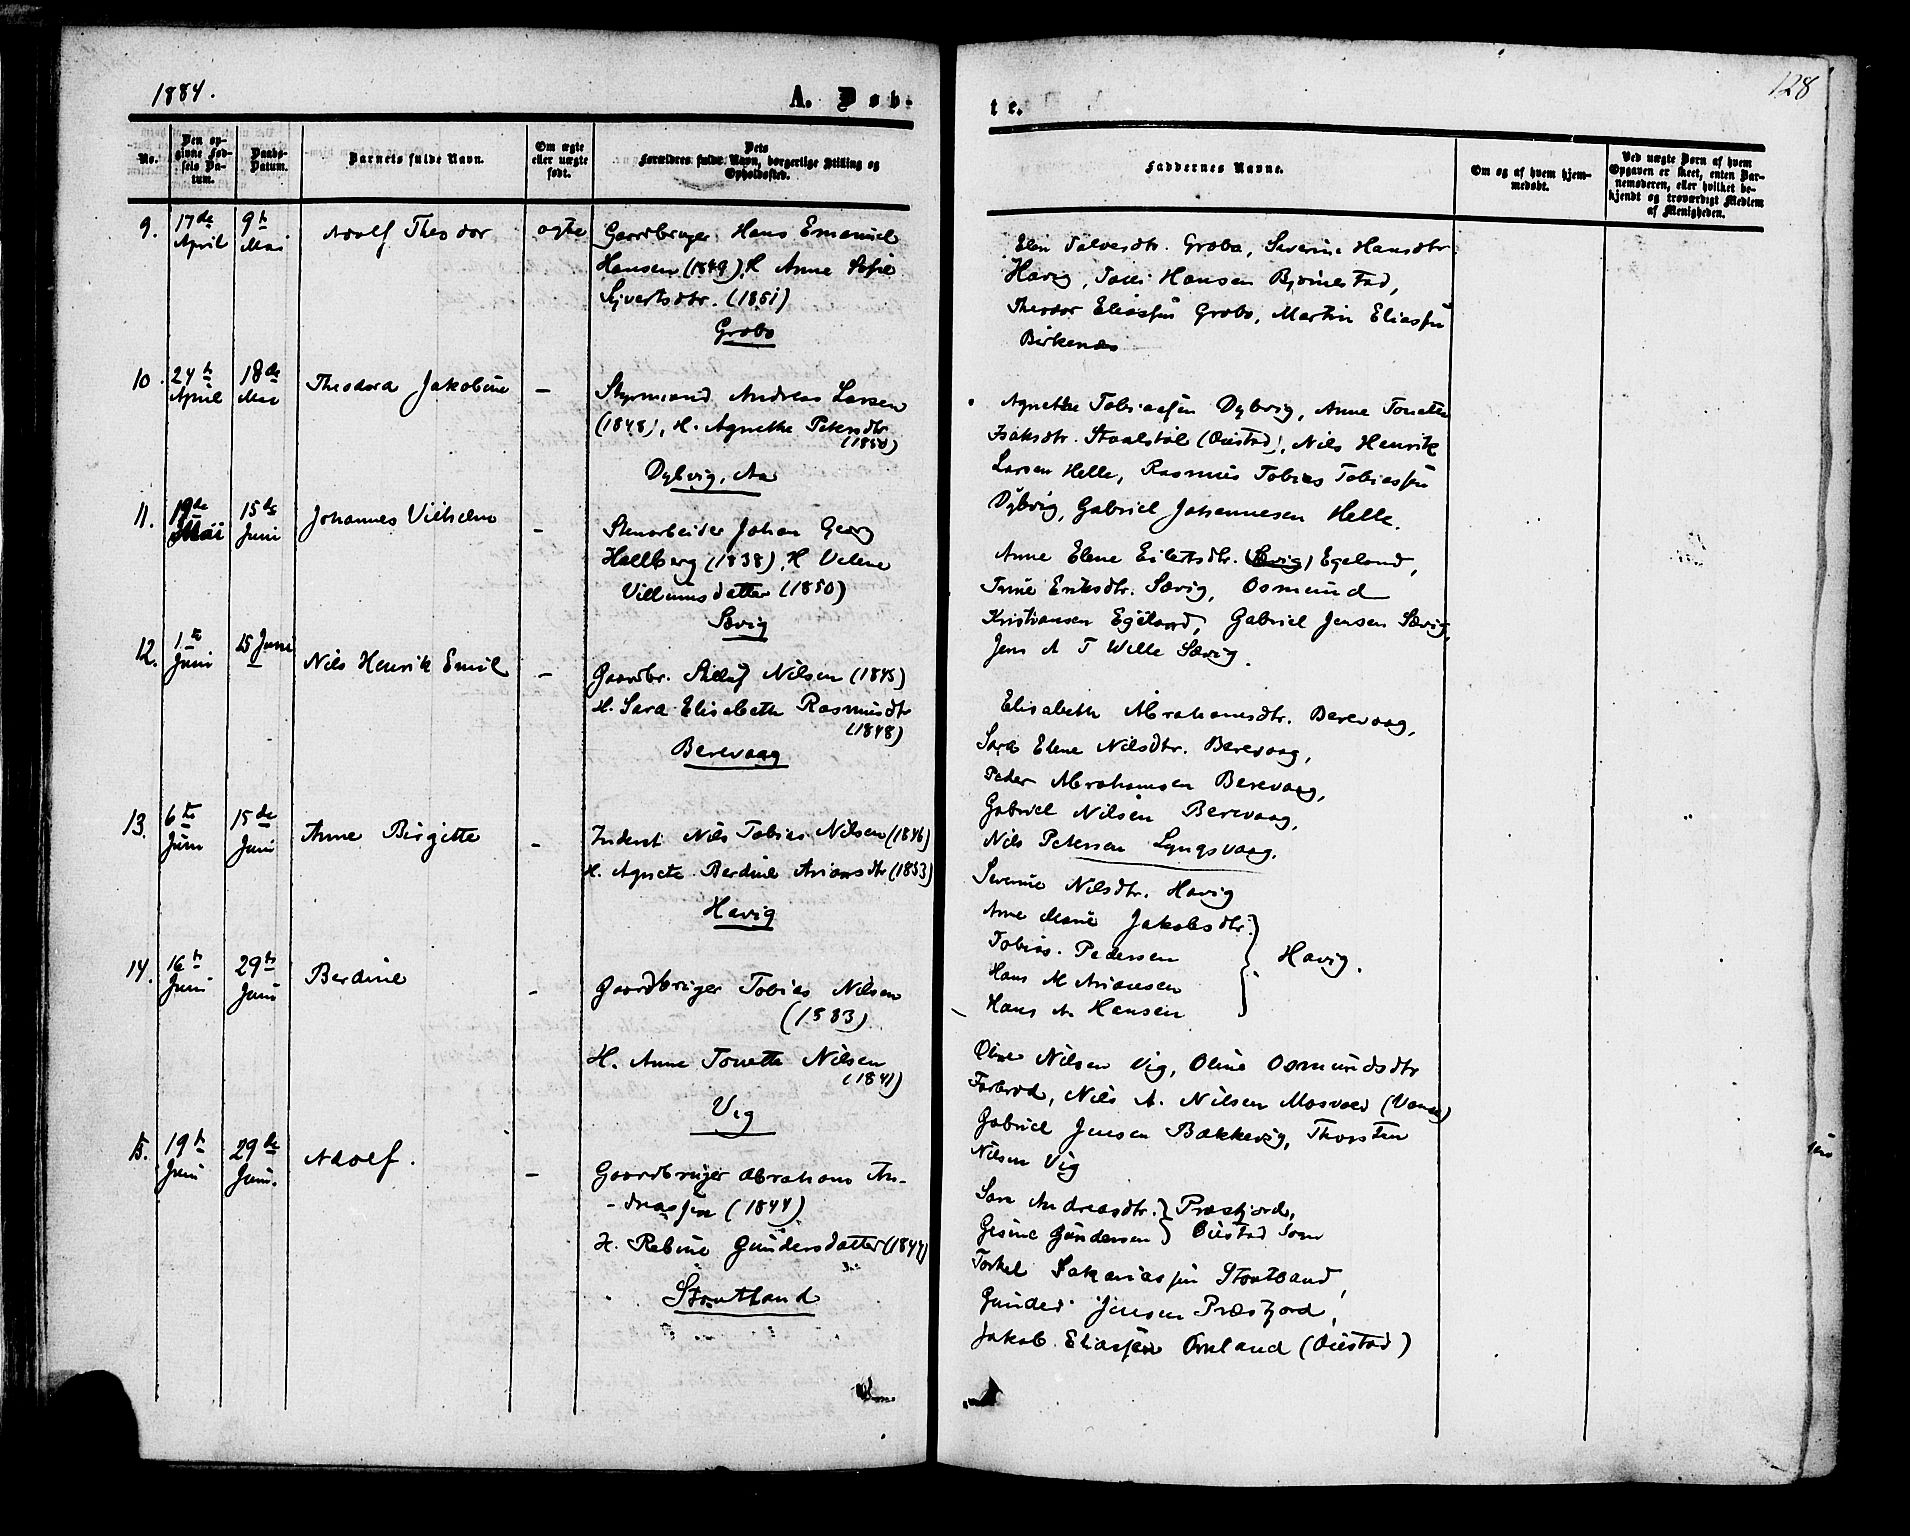 1884.
A. Døb-
te.
128
No.
Den op-
givne Fød-
sels Da-
tum.
Daabs-
Datum.
Barnets fulde Navn.
Om ægte
eller uægte
født.
Dets
Forældres fulde Navn, borgerlige Stilling og
Opholdssted.
Faddernes Navne.
Om og af hvem hjem-
medøbt.
Ved uægte Børn af hvem
Opgaven er skeet, enten Bar-
nemoderen, eller hvilket be-
kjendt og troværdigt Medlem
af Menigheden.
9.
17de
April
9de
Mai
Adolf Theodor
ægte
Gaardbruger Hans Emanuel
Hansen (1849), H. Anne Sofie
Sijvertsdtr. (1851)
Grobø
Elen Salvesdtr. Grobø, Severine Hansdtr
Havig, Hansen Bjørnestad,
Theodor Eliassen Grobø, Martin Eliassen
Birkenes
10.
24de
April
18de
Mai
Theodora Jakobine
—
Styrmand Andreas Larsen
(1848), H. Agnethe Petersdtr
(1850)
Dybvig, Aa
Agnethe Tobiassen Dybvig, Anne Tonette
Isaksdtr. Staalstøl (Øiestad), Nils Henrik
Larsen Helle, Rasmus Tobias Tobiassen
Dybvig, Gabriel Johannesen Helle.
11.
19de
Mai
15de
Juni
Johannes Vilhelm
—
Stenarbeider Johan Georg
Hallberg (1838), H Velene
Villumsdatter (1850)
Sævig
Anne Elene Eilertsdtr. Egeland,
Trine Eriksdtr. Sævig, Osmund
Kristiansen Egeland, Gabriel Jensen Sævig,
Jens A T Wille Sævig.
12.
1ste
Juni
15 Juni
Nils Henrik Emil
—
Gaardbr. Nilsen (1845)
H. Sara Elisabeth Rasmusdtr
(1848)
Berevaag
Elisabeth Abrahamsdtr. Berevaag,
Sara Elene Nilsdtr. Berevaag,
Peder Abrahamsen Berevaag,
Gabriel Nilsen Berevaag,
Nils Petersen Lyngsvaag.
13.
6te
Juni
15de
Juni
Anne Birgitte
—
Inderst Nils Tobias Nilsen (1846)
H. Agnete Berdine Ariansdtr (1853)
Havig
Severine Nilsdtr. Havig
Anne Marie Jakobsdtr.
Tobias Pedersen
Havig.
Hans M Ariansen
Hans A. Hansen
14.
16de
Juni
29de
Juni
Berdine
—
Gaardbruger Tobias Nilsen
(1883)
H. Anne Tonette Nilsen
(1841)
Vig
Oline Nilsen Vig, Oline Osmundsdtr
Farbrød, Nils A. Nilsen Mosvold (Vanse)
Gabriel Jensen Bakkevig, Thorsten
Nilsen Vig
15.
19de
Juni
29de
Juni.
Adolf.
—
Gaardbruger Abraham An-
dreassen (1844)
H. Rebine Gundersdatter (1844)
Stratland
Sara Andreasdtr. Præstfjord,
Gesine Gundersen Øiestad Sogn
Torkel Sakariassen Stratland,
Gunder Jensen Præstfjord,
Jakob Eliassen Omland (Øiestad)